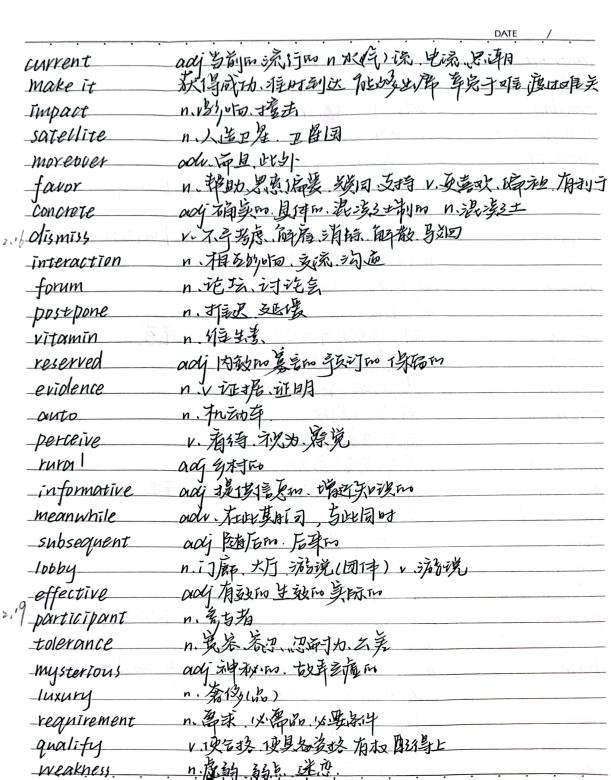 DATE /
current adj 当前的 流行的 n 水(气)流 电流 思潮
make it 获得成功、准时到达 能够出席 幸免于难 渡过难关
impact n.影响.撞击
satellite n.人造卫星.卫星国
moreover adv.而且.此外
favor n.帮助.恩惠 偏袒 赞同 支持 v.更喜欢.偏袒.有利于
concrete adj 确实的.具体的.混凝土制的 n.混凝土
2.16 dismiss v.不予考虑.解雇.消除.解散.驳回
interaction n.相互影响.交流.沟通
forum n.论坛、讨论会
postpone n.推迟 延缓
vitamin n.维生素
reserved adj 内敛的 寡言的 预订的 保留的
evidence n.v 证据.证明
auto n.机动车
perceive v.看待.视为.察觉
rural adj 乡村的
informative adj 提供信息的.增进知识的
meanwhile adv.在此期间,与此同时
subsequent adj 随后的.后来的
lobby n.门廊、大厅.游说(团体) v.游说
effective adj 有效的 生效的 实际的
2.19 participant n.参与者
tolerance n.宽容.容忍.忍耐力.公差
mysterious adj 神秘的.故弄玄虚的
luxury n.奢侈(品)
requirement n.需求.必需品.必要条件
qualify v.使合格.使具备资格 有权 配得上
weakness n.虚弱.弱点.迷恋.